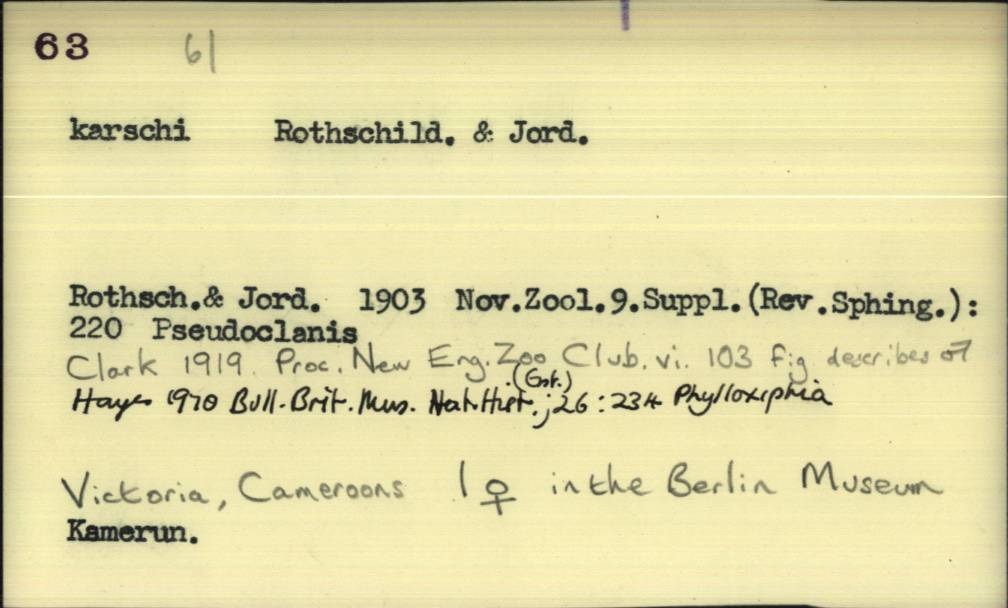 63 61
karschi Rothschild. & Jord.
Rothsch.& Jord. 1903 Nov.Zool.9.Suppl.(Rev.Sphing.):
220 Pseudoclanis
Clark 1919. Proc. New Eng. Zoo Club. vi. 103 fig describes ♂
(Ent.)
Hayes 1970 Bull. Brit. Mus. Nat. Hist. ; 26 : 234 Phylloxiphia
Victoria, Cameroons 1 ♀ in the Berlin Museum
Kamerun.